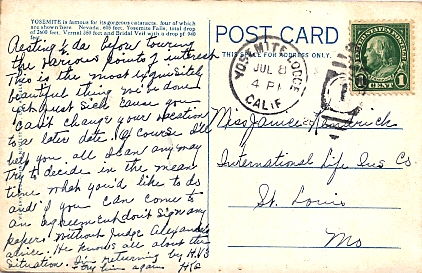 YOSEMITE is famous for its gorgeous cataracts, four of which
are shown here. Nevada, 605 feet and Bridal Veil, total drop
of 2600 feet. Vernal 350 feet and Bridal Veil with a drop of 940
feet.
POST CARD
THIS SPACE FOR ADDRESS ONLY
YOSEMITE LODGE
JUL 8
4 P
CALIF.
UNITED STATES POSTAGE
1 CENT 1
Resting to-da before touring
the various points of interest
This is the most exquisitely
beautiful thing we've done
Am just sick cause you
can't change your vacation
to a later date. Of course I'll
help you all I can any way
Try to decide in the mean
time what you'd like to do
and if you can come to
an agreement don't sign any
papers without Judge Alexander's
advice. He knows all about the
situation. I'm returning by
again
Miss
International Life Ins Co.
St. Louis
Mo